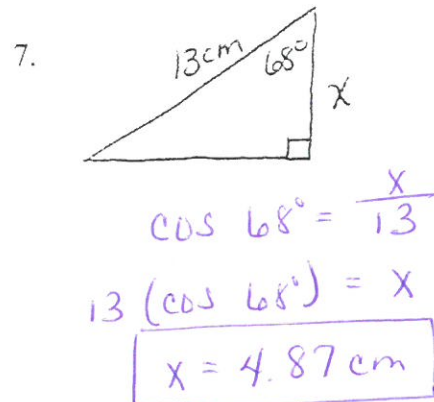 7.
13cm
68°
x
cos 68° = x/13
13 (cos 68°) = x
x = 4.87 cm